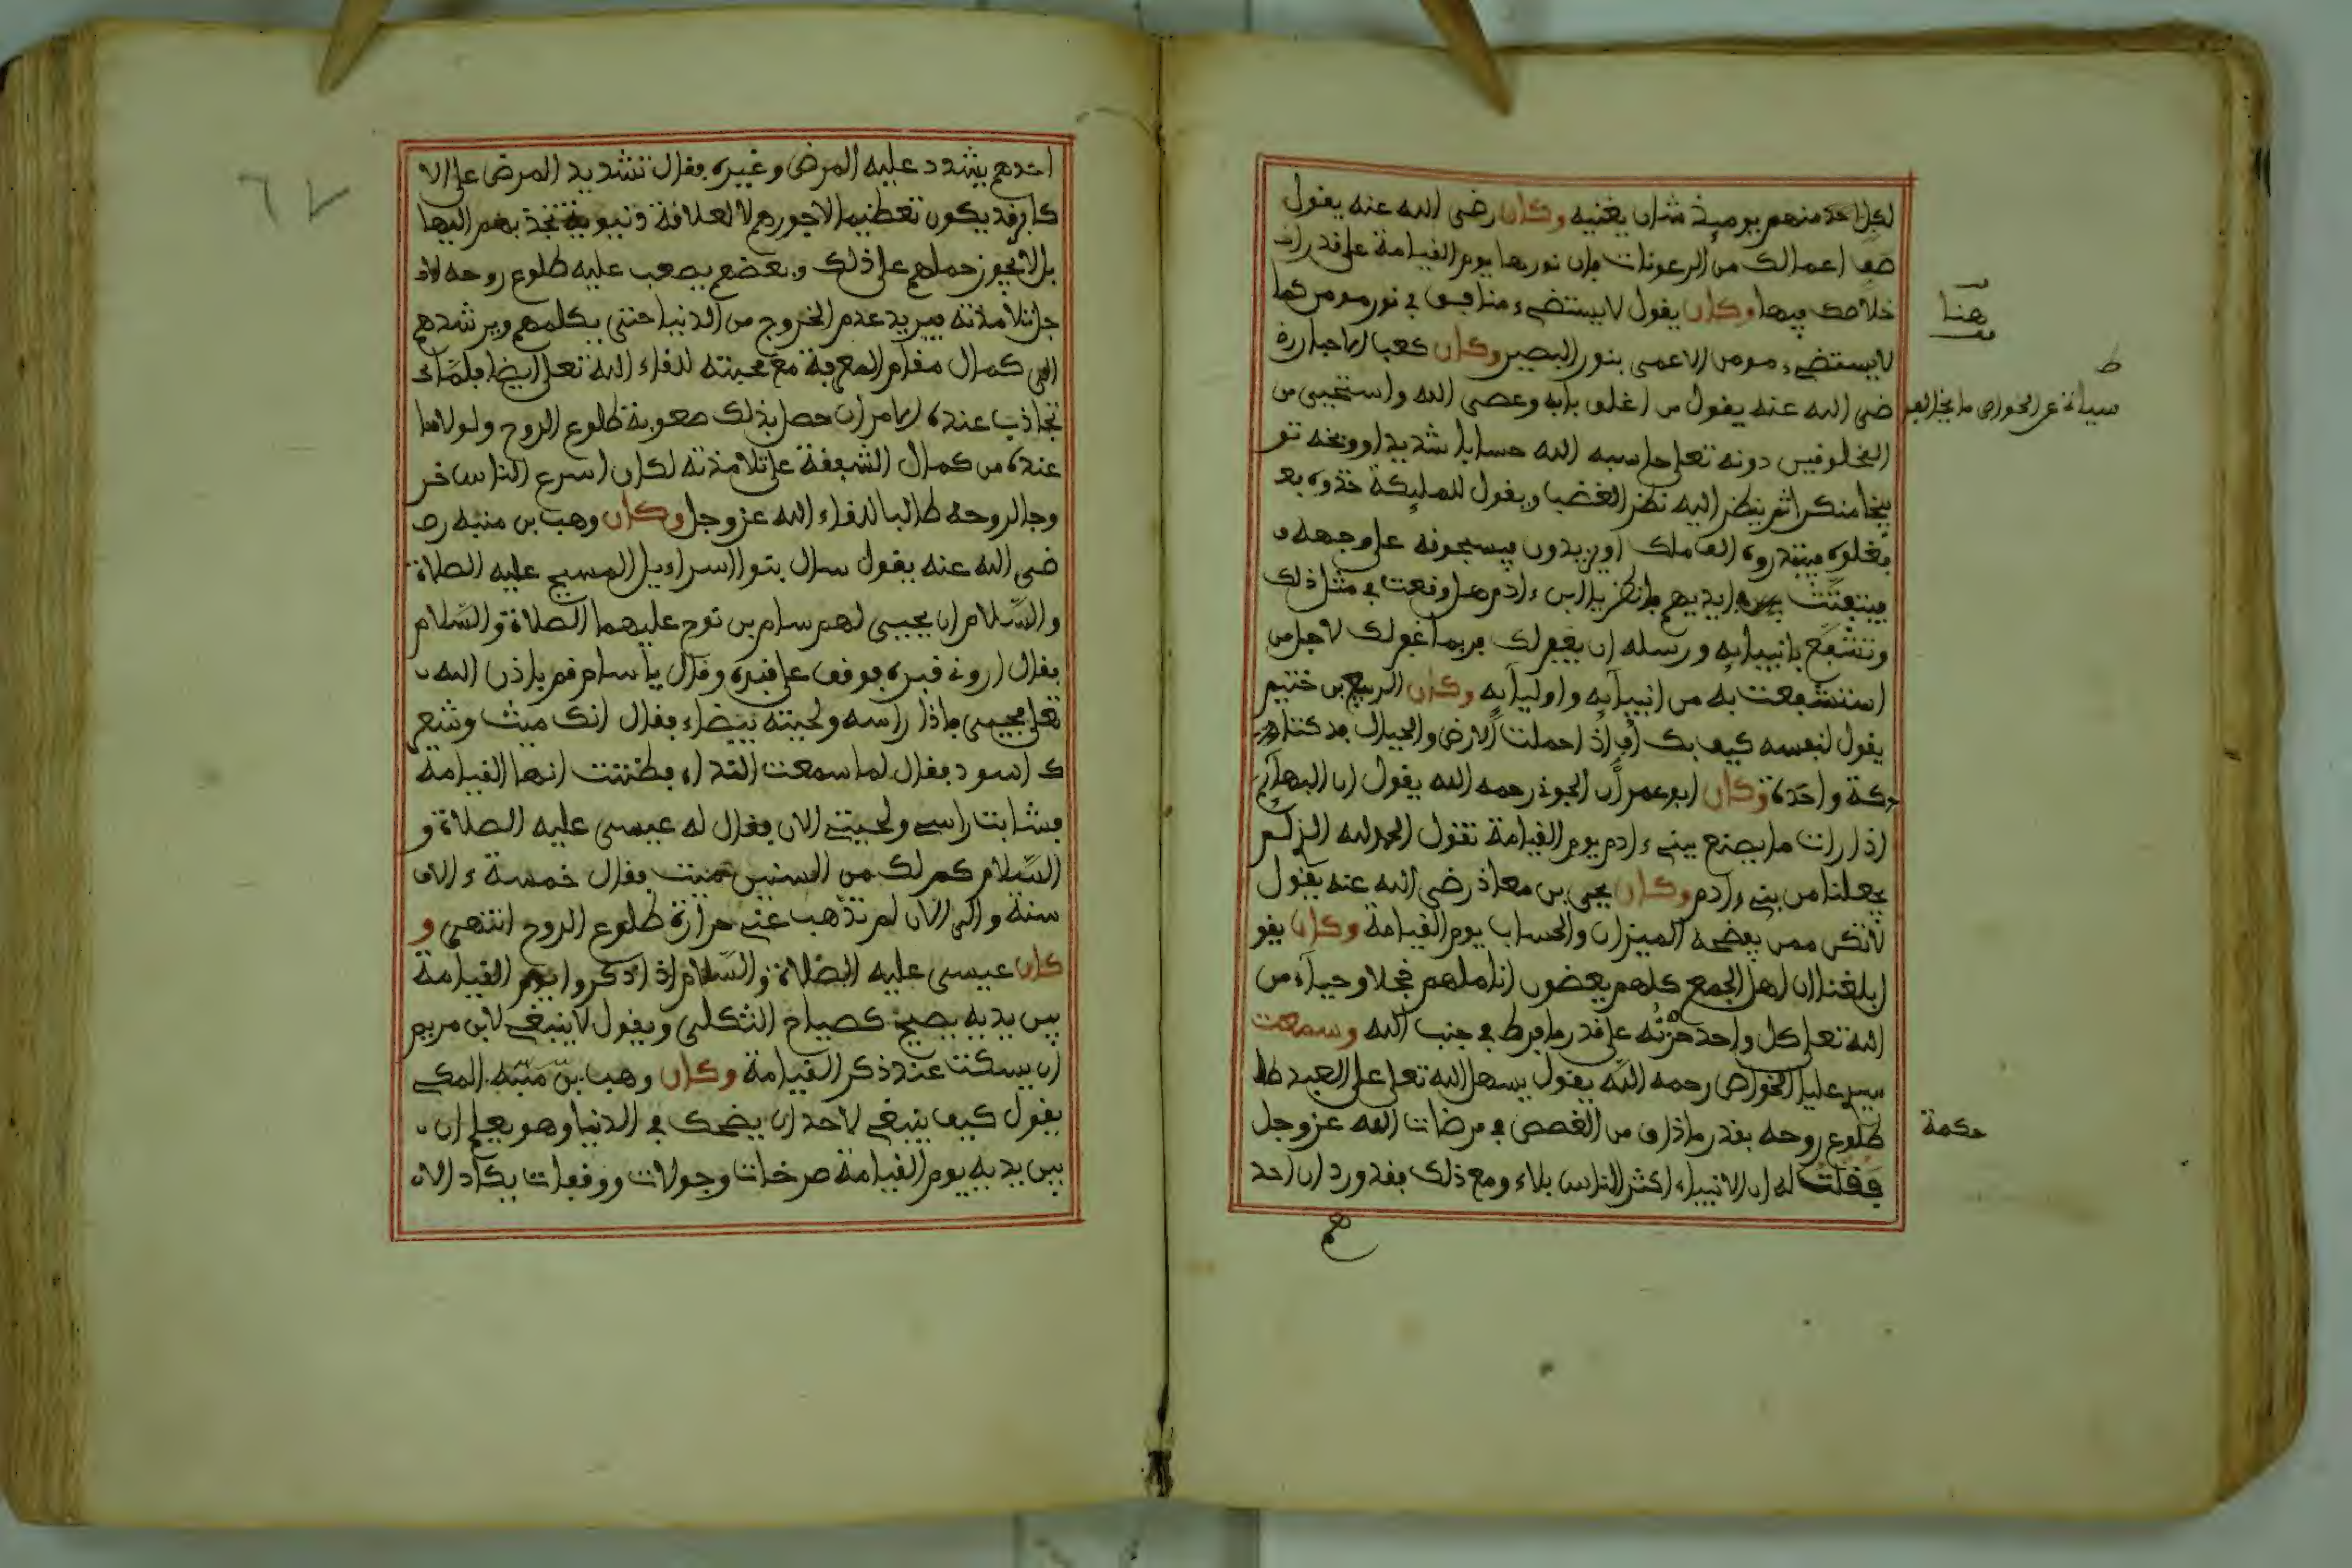 لكل احد منهم يوميذ شان يغنيه وكان رضى الله عنه يقول
صف اعمالك من الرعونات فان نورها يوم القيامة على قدر
خلاصك فيها وكان يقول لا يستضىء منافق في نور مومن كما
لا يستضىء مومن الاعمى بنور البصير وكان كعب الاحبار ر
ضى الله عنه يقول من اغلق بابه وعصى الله واستحيى من
المخلوقين دونه تعلى حاسبه الله حسابا شديدا ووبخه تو
بيخا منكرا ثم ينظر اليه نظر الغضب ويقول للمليكة خذوه بعد
فغلوه فيبتدروه الف ملك او يزيدون فيسحبونه على وجهه
فيتفتت ايديهم فانظر يا ابن ءادم هل وقعت في مثل ذلك
وتشفع بانبيايه ورسله ان يغفر لك فربما غفر لك لاجل من
استشفعت به من انبيايه واوليايه وكان الربيع بن خثيم
يقول لنفسه كيف بك اذا حملت الارض والجبال فدكتا د
كة واحدة وكان ابو عمران الجونى رحمه الله يقول ان البهايم
اذا رات ما يصنع ببنى ءادم يوم القيامة تقول الحمد لله الذى لم
يجعلنا من بنى ءادم وكان يحيى بن معاذ رضى الله عنه يقول
لا تكن ممن يفضحه الميزان والحساب يوم القيامة وكان يقو
ل بلغنا ان اهل الجمع كلهم يعضون اناملهم خجلا وحياء من
الله تعلى كل واحد حزنه على قدر ما فرط في جنب الله وسمعت
سيدى عليا الخواص رحمه الله يقول يسهل الله تعلى على العبد
طلوع روحه بقدر ما ذاق من الغصص في مرضات الله عز وجل
فقلت له ان الانبياء اكثر الناس بلاء ومع ذلك فقد ورد ان احد
هم
هنا
ط
حكمة
احدهم يشدد عليه المرض وغيره فقال تشديد المرض على الا
كابر قد يكون تعظيما لاجورهم لا لعلاقة دنيوية تجذبهم اليها
بل لا يجوز حملهم على ذلك وبعضهم يصعب عليه طلوع روحه لا
جل تلامذته فيريد عدم الخروج من الدنيا حتى يكلمهم ويرشدهم
الى كمال مقام المعرفة مع محبته للقاء الله تعلى ايضا فلما
تجاذب عنده الامران حصل بذلك صعوبة طلوع الروح ولولا ما
عنده من كمال الشفقة على تلامذته لكان اسرع الناس خر
وجا لروحه طالبا للقاء الله عز وجل وكان وهب بن منبه ر
ضى الله عنه يقول سال بنوا اسراءيل المسيح عليه الصلاة
والسلام ان يحيى لهم سام بن نوح عليهما الصلاة والسلام
فقال ارونى قبره فوقف على قبره وقال يا سام قم باذن الله
تعلى فحيى فاذا راسه ولحيته بيضاء فقال انك ميت وشعر
ك اسود فقال لما سمعت النداء فظننت انها القيامة
فشابت راسى ولحيتى الان فقال له عيسى عليه الصلاة و
السلام كم لك من السنين ميت فقال خمسة ءالاف
سنة والى الان لم تذهب عنى حرارة طلوع الروح انتهى و
كان عيسى عليه الصلاة والسلام اذا ذكروا يوم القيامة
بين يديه يصيح كصياح الثكلى ويقول لا ينبغى لابن مريم
ان يسكت عند ذكر القيامة وكان وهب بن منبه المكى
يقول كيف ينبغى لاحد ان يضحك في الدنيا وهو يعلم ان
بين يديه يوم القيامة صرخات وجولات ووقفات يكاد الان